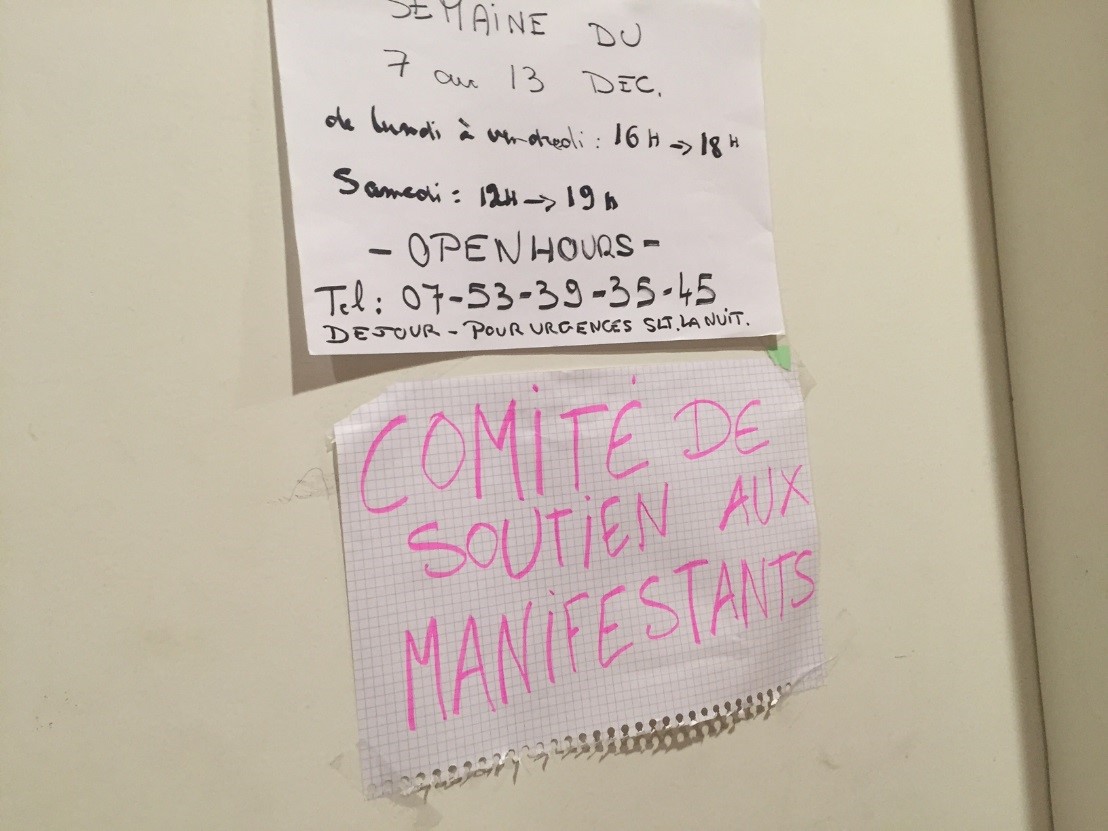 SEMAINE DU
7 au 13 DEC.
de lundi à vendredi : 16H -> 18H
Samedi : 12H -> 19h
- OPENHOURS -
Tel : 07-53-39-35-45
DE JOUR - POUR URGENCES SLT. LA NUIT.
COMITÉ DE
SOUTIEN AUX
MANIFESTANTS